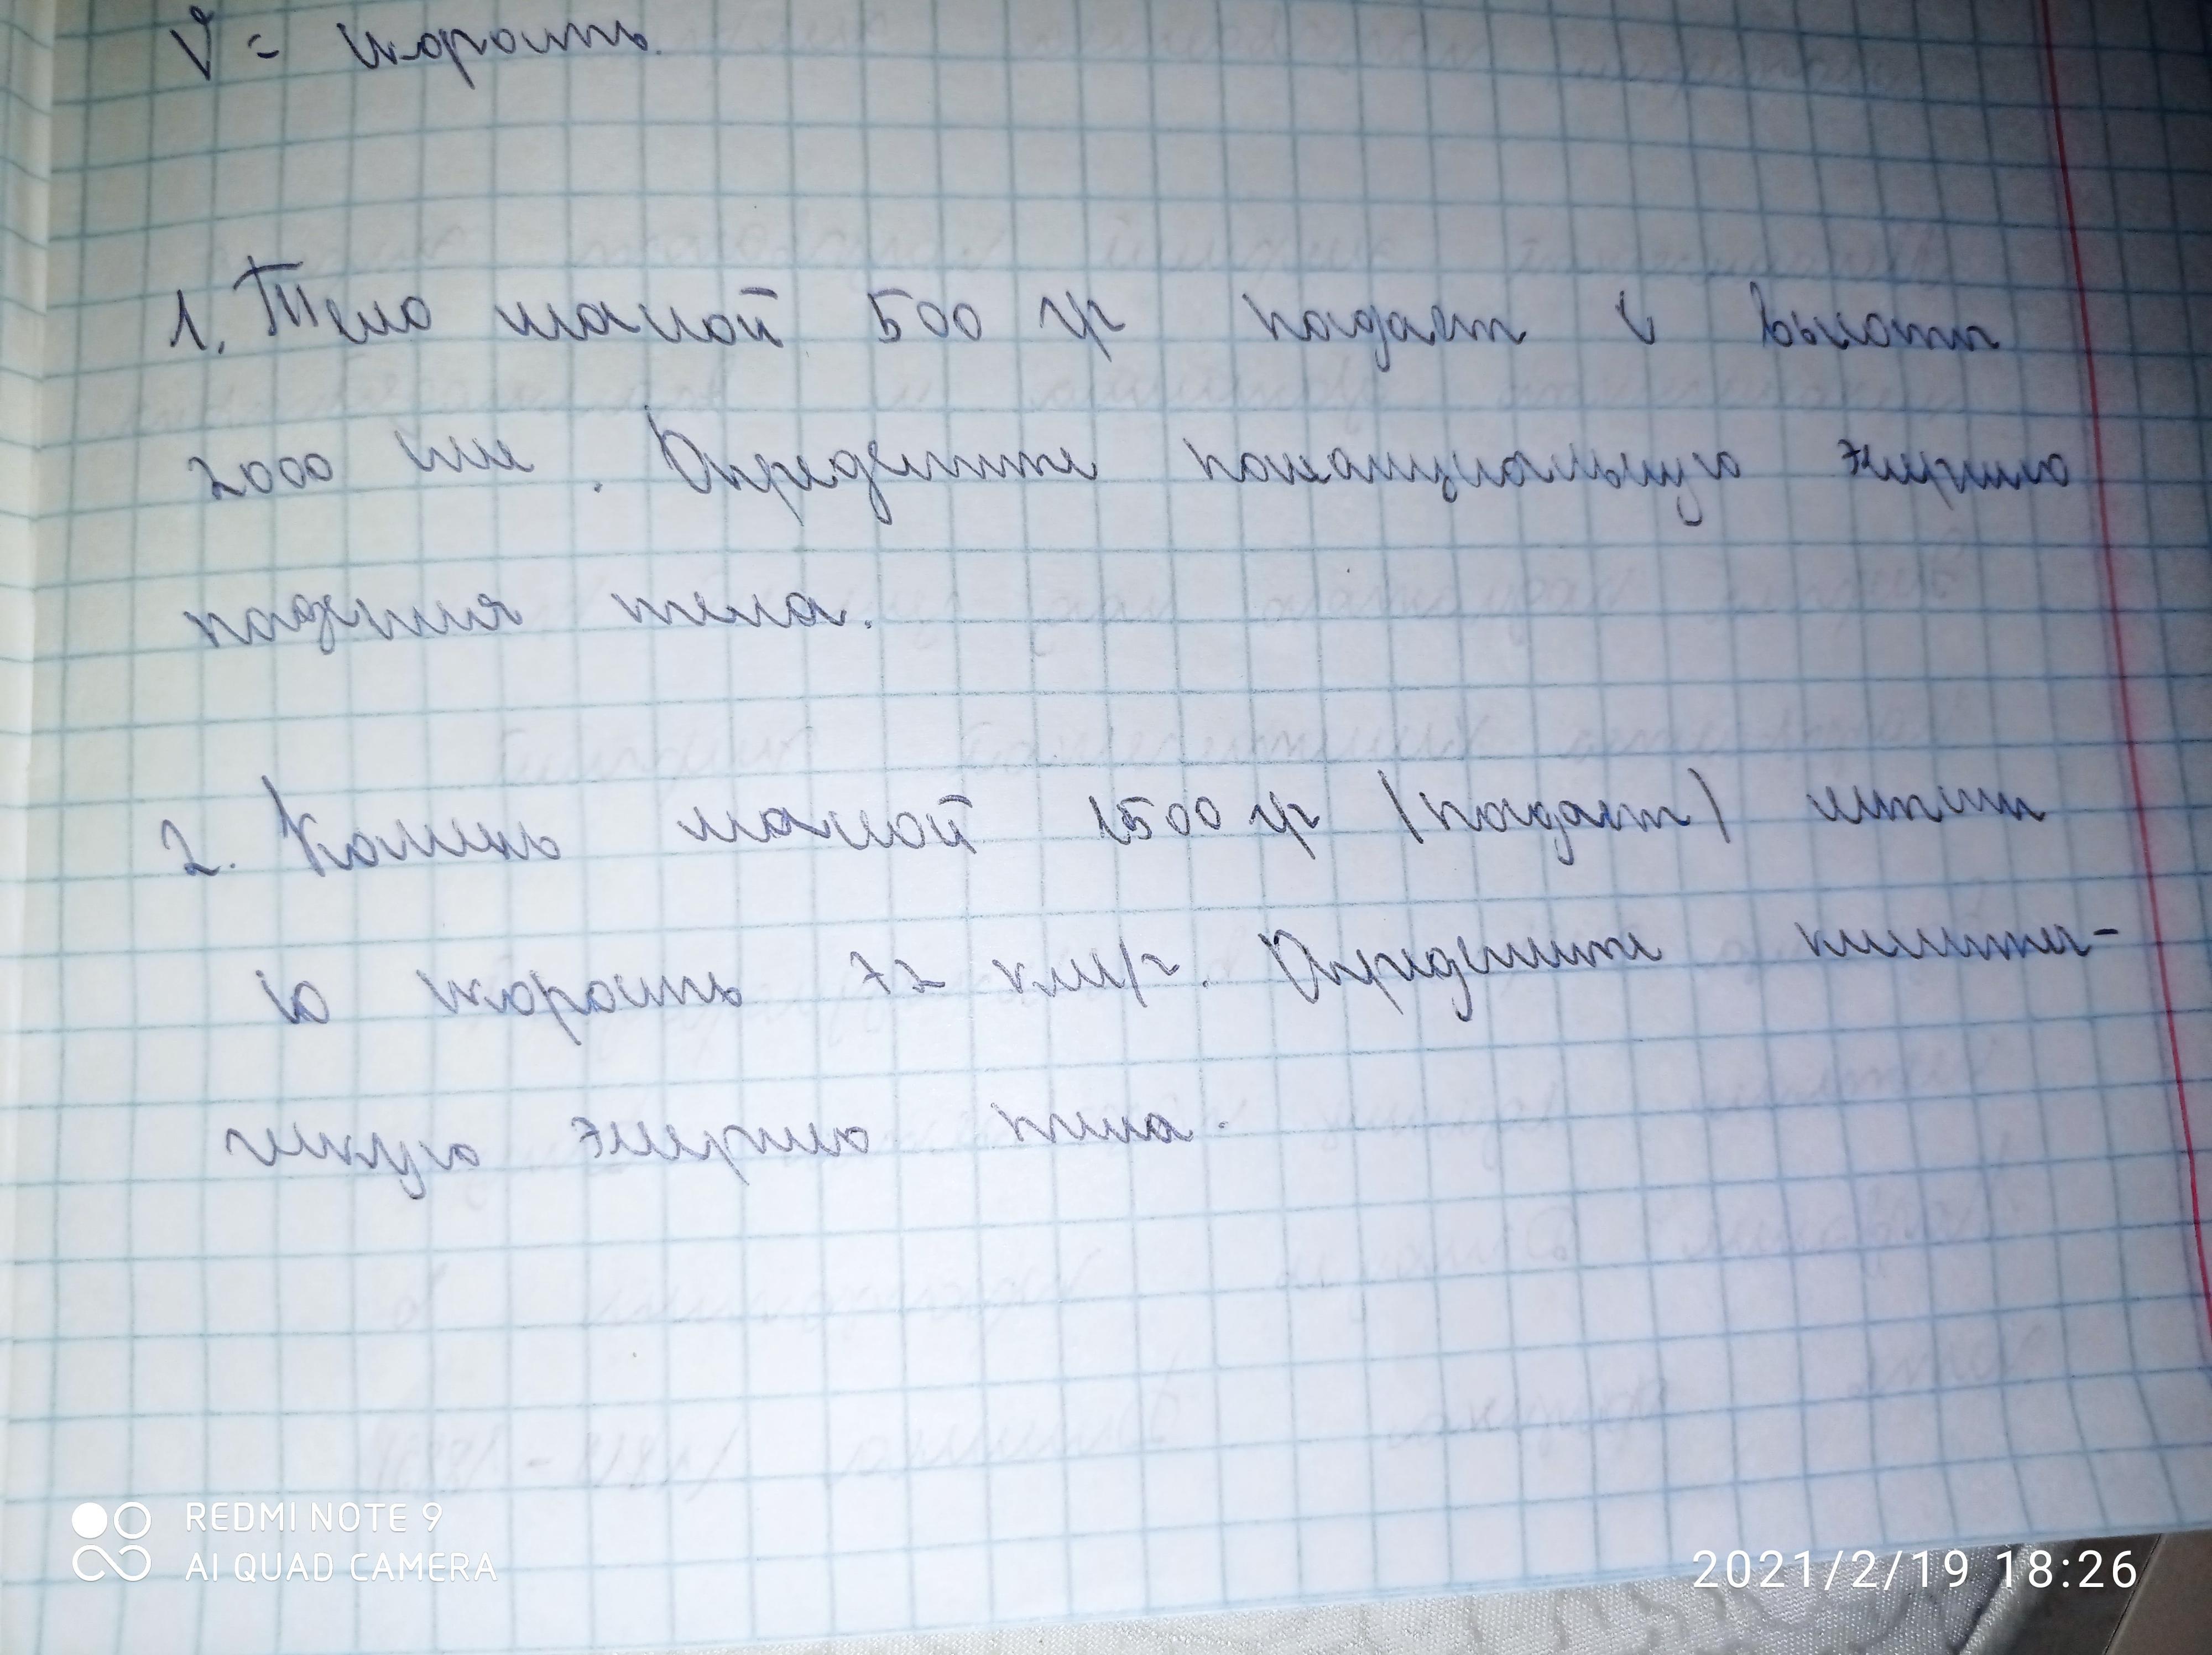 V = скорость.
1. Тело массой 500 гр падает с высоты
2000 мм. Определите потенциальную энергию
падения тела.
2. Камень массой 1500 гр (падает) летит
со скорость 72 км/ч. Определите кинети-
ческую энергию тела.
REDMI NOTE 9
AI QUAD CAMERA
2021/2/19 18:26